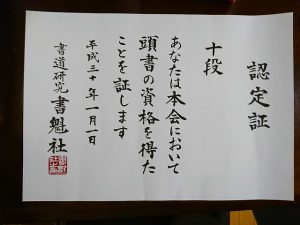 認定証
十段
あなたは本会において
頭書の資格を得た
ことを証します
平成三十年一月一日
書道研究 書魁社